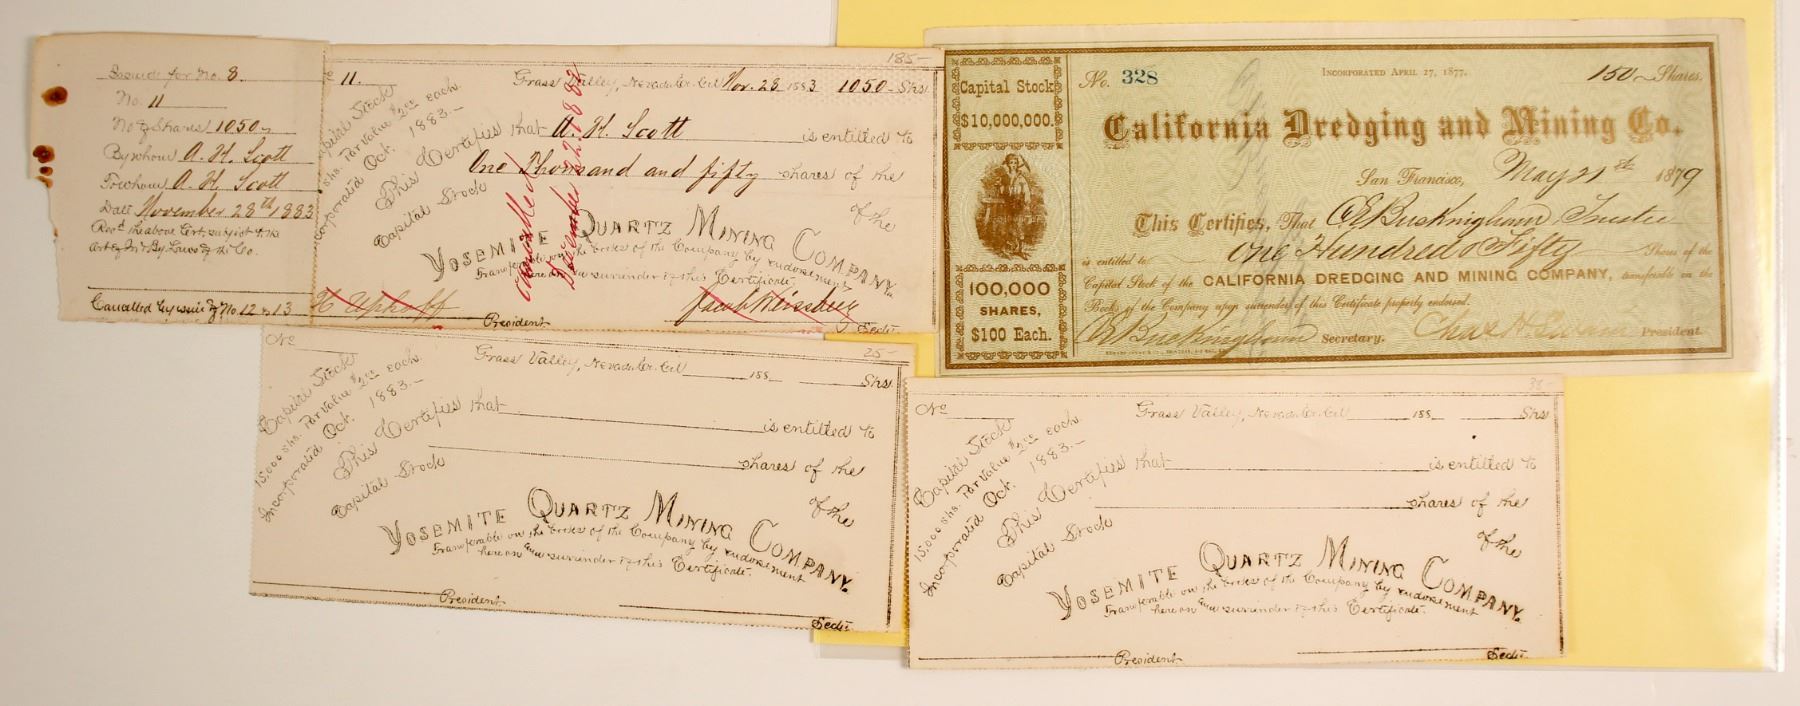 Issued for No. 8.
No. 11
No of Shares 1050
By whom A. H. Scott
To whom A. H. Scott
Date November 28th 1883
Recd. the above Cert. subject to the
Art of In & By Laws of the Co.
Cancelled by issue of No. 12 & 13
185-
No 11.
Grass Valley, Nevada Co. Cal Nov. 28 1883 1050 Shs
Capital Stock
shs. Par Value $2.00 each.
Incorporated Oct. 1883.
This Certifies that A. H. Scott is entitled to
One Thousand and fifty shares of the
Capital Stock of the
YOSEMITE QUARTZ MINING COMPANY.
Transferable on the books of the Company by endorsement
hereon and surrender of this Certificate.
Cancelled
December 22nd 1883
H Uphoff President
Jacob Weissbein Secty
No. 328
INCORPORATED APRIL 17, 1877.
150 Shares.
Capital Stock
$10,000,000.
100,000
SHARES,
$100 Each.
California Dredging and Mining Co.
San Francisco, May 21st 1879
This Certifies, That C E Buckingham Trustee
is entitled to One Hundred & Fifty Shares of the
Capital Stock of the CALIFORNIA DREDGING AND MINING COMPANY, transferable on the
Books of the Company upon surrender of this Certificate properly endorsed.
C E Buckingham Secretary.
Chas H President
No
25-
Grass Valley, Nevada Co. Cal 188 Shs
Capital Stock
15,000 shs. Par Value $2.00 each.
Incorporated Oct. 1883.
This Certifies that is entitled to
shares of the
Capital Stock of the
YOSEMITE QUARTZ MINING COMPANY.
Transferable on the books of the Company by endorsement
hereon and surrender of this Certificate.
President
Secty
No
38-
Grass Valley, Nevada Co. Cal 188 Shs
Capital Stock
15,000 shs. Par Value $2.00 each.
Incorporated Oct. 1883.
This Certifies that is entitled to
shares of the
Capital Stock of the
YOSEMITE QUARTZ MINING COMPANY.
Transferable on the books of the Company by endorsement
hereon and surrender of this Certificate.
President
Secty